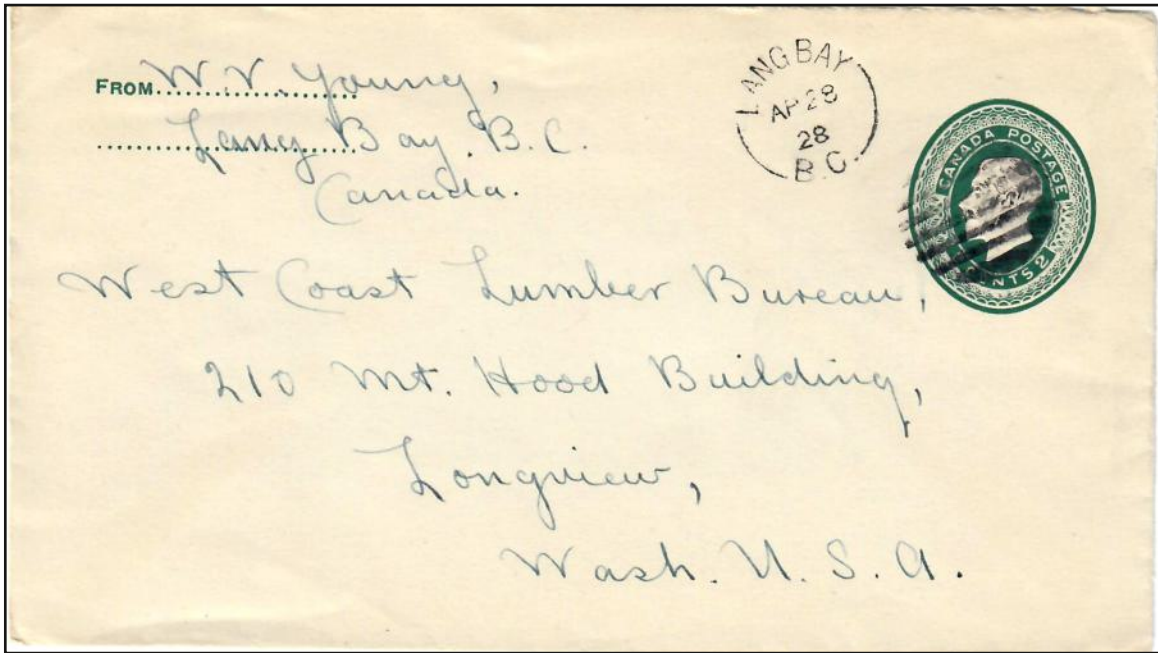 FROM W. V. Young,
Lang Bay. B.C.
Canada.
LANG BAY
AP 28
28
B.C.
CANADA POSTAGE
CENTS 2
West Coast Lumber Bureau,
210 Mt. Hood Building,
Longview,
Wash. U. S. A.